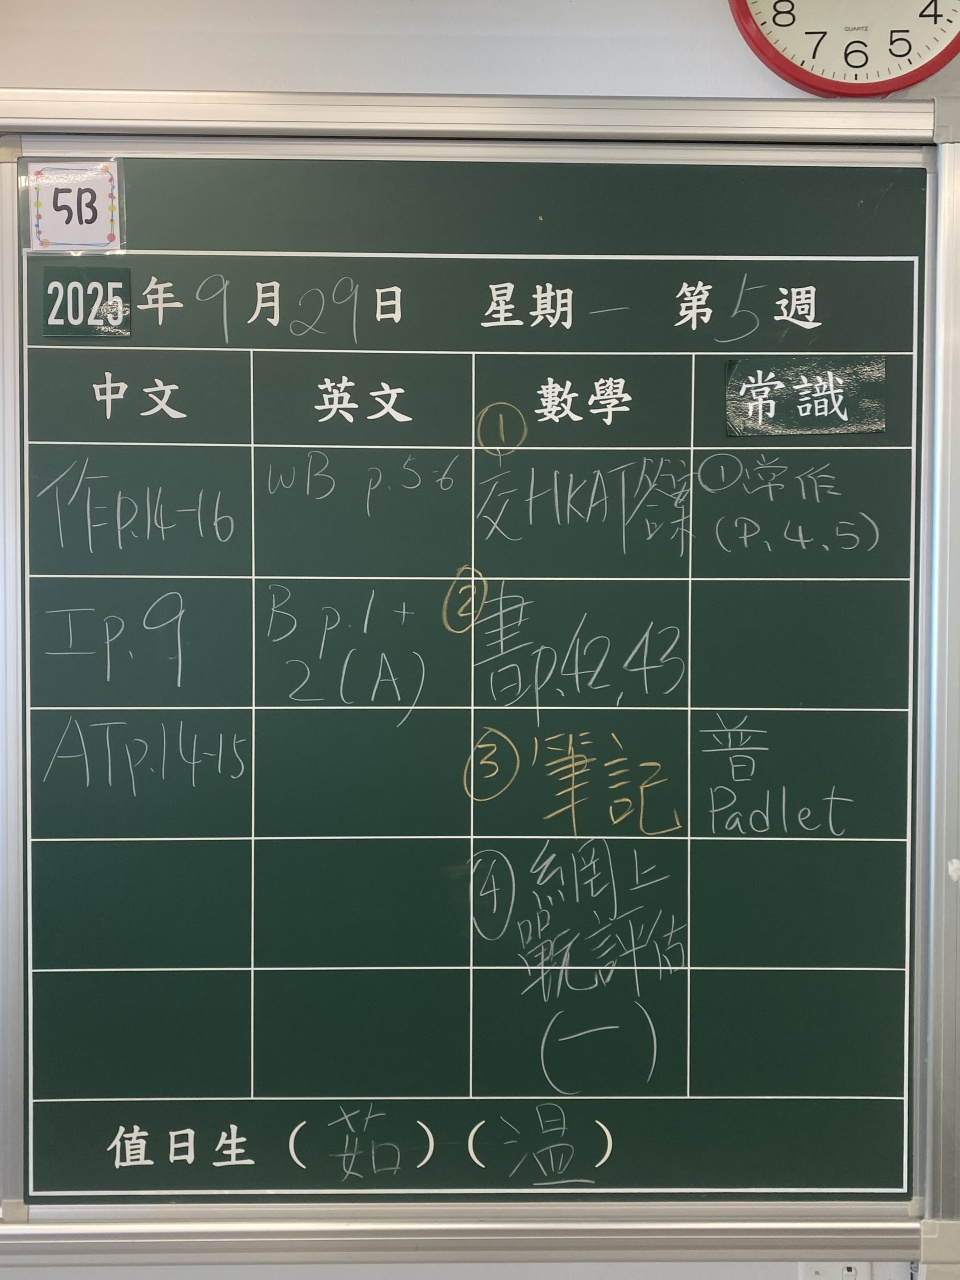 8 7 6 5 4
QUARTZ
5B
2025年9月29日 星期一 第5週
中文 英文 數學 常識
作p.14-16
WB p.5-6
①
交HKAT錄
①常作
(P.4、5)
工p.9
B p.1+
2(A)
②
書p.42,43
ATp.14-15
③筆記
普
Padlet
④網上
戰玩評估
(一)
值日生(茹)(溫)